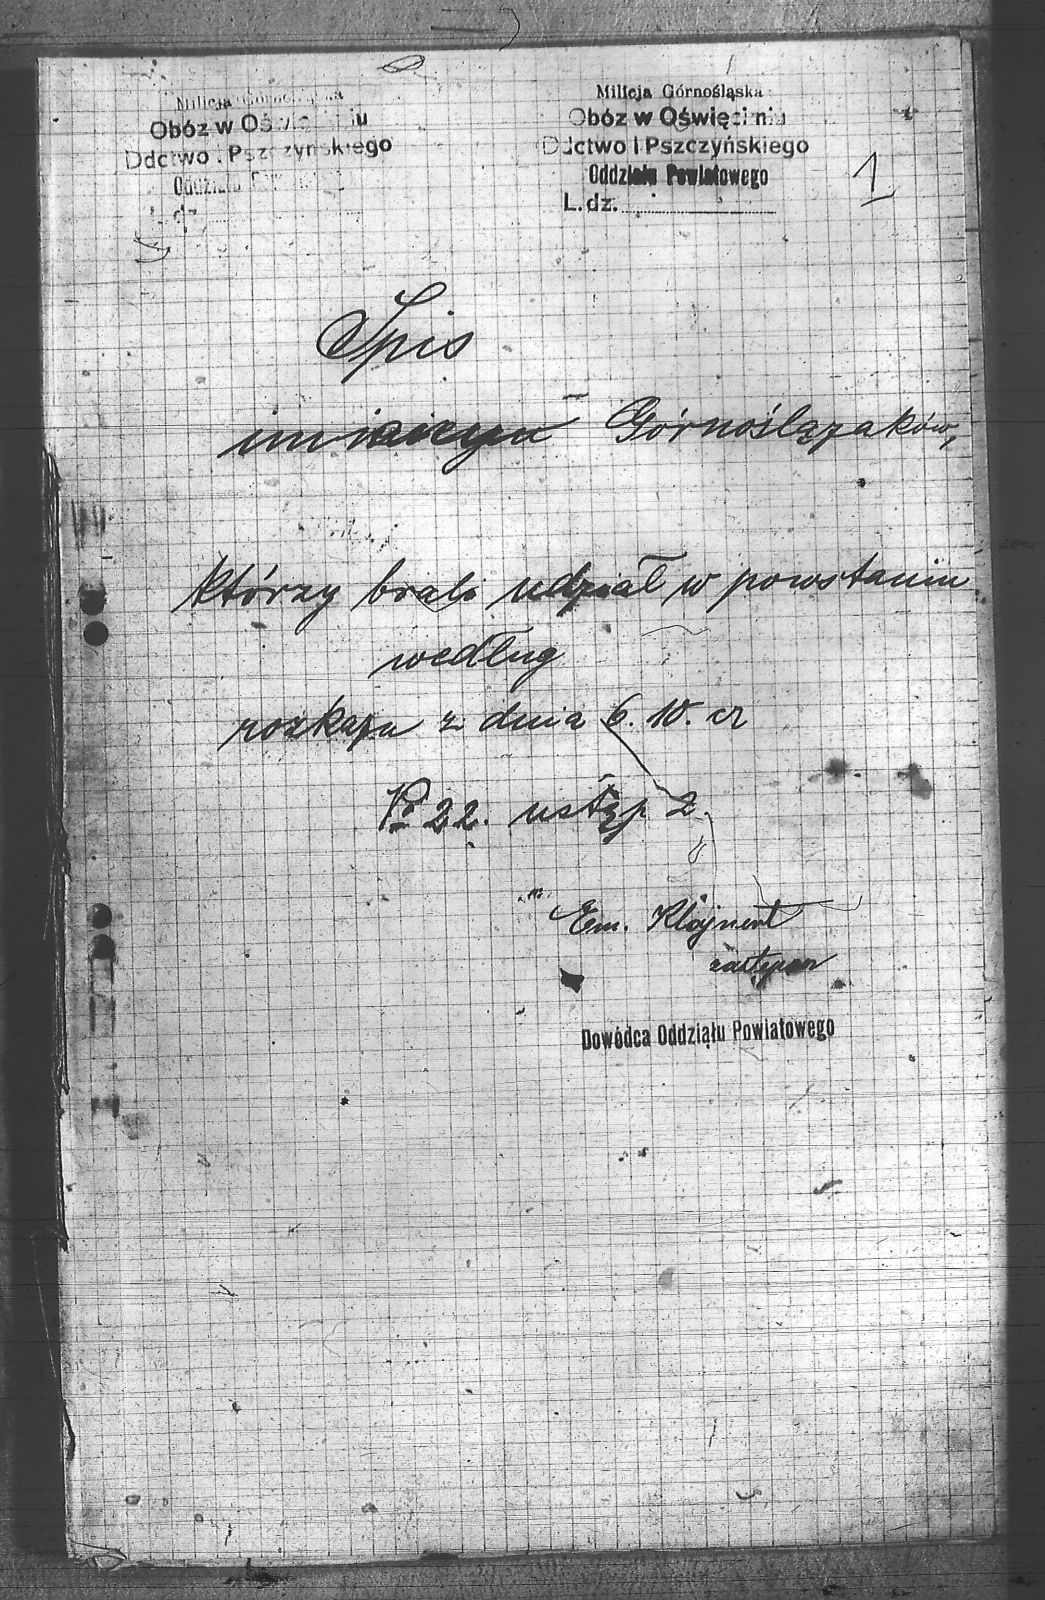 Milicja Górnośląska
Obóz w Oświęcimiu
Ddctwo I Pszczyńskiego
Oddziału Powiatowego
L. dz.
Milicja Górnośląska
Obóz w Oświęcimiu
Ddctwo I Pszczyńskiego
Oddziału Powiatowego
L. dz.
1
Spis
Górnoślązaków,
którzy brali udział w powstaniu
według
rozkazu z dnia 6. 10. cr
No 22. ustęp 2.
Em. Klojnert
zastępca
Dowódca Oddziału Powiatowego